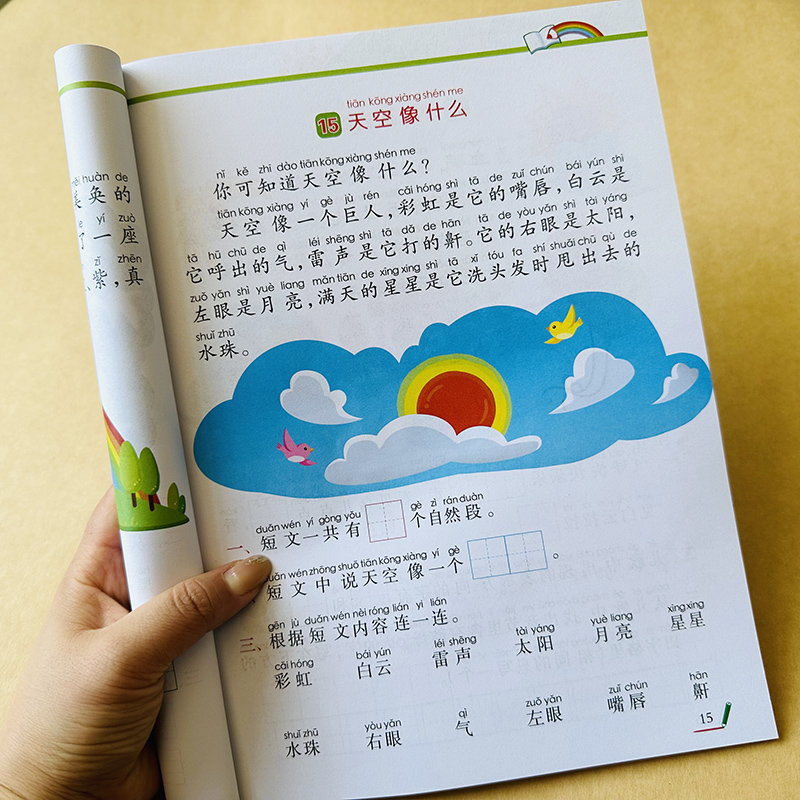 tiān kōng xiàng shén me
15 天空像什么
nǐ kě zhī dào tiān kōng xiàng shén me
你可知道天空像什么?
tiān kōng xiàng yí gè jù rén cǎi hóng shì tā de zuǐ chún bái yún shì
天空像一个巨人,彩虹是它的嘴唇,白云是
tā hū chū de qì léi shēng shì tā dǎ de hān tā de yòu yǎn shì tài yáng
它呼出的气,雷声是它打的鼾。它的右眼是太阳,
zuǒ yǎn shì yuè liang mǎn tiān de xīng xing shì tā xǐ tóu fa shí shuǎi chū qù de
左眼是月亮,满天的星星是它洗头发时甩出去的
shuǐ zhū
水珠。
duǎn wén yí gòng yǒu gè zì rán duàn
一、短文一共有 个自然段。
wén zhōng shuō tiān kōng xiàng yí gè
短文中说天空像一个 。
gēn jù duǎn wén nèi róng lián yi lián
三、根据短文内容连一连。
cǎi hóng bái yún léi shēng tài yáng yuè liang xīng xing
彩虹 白云 雷声 太阳 月亮 星星
shuǐ zhū yòu yǎn qì zuǒ yǎn zuǐ chún hān
水珠 右眼 气 左眼 嘴唇 鼾
15
huàn de
奂的
yí zuò
一座
zǐ zhēn
紫,真